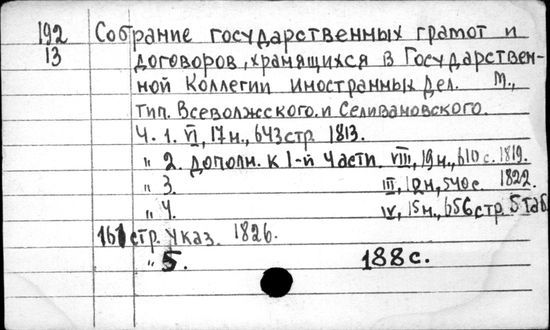 192 Собрание государственных грамот и
13 договоров, хранящихся в Государствен-
ной Коллегии иностранных дел. М.,
тип. Всеволжского и Селивановского.
Ч. 1. VI, 17н., 643 стр. 1813.
" 2. дополн. к 1-й части. VIII, 19н., 610 с. 1819.
" 3. III, 12н, 540 с. 1822.
" 4. IV, 15н., 656 стр. 5 таб.
161 стр. Указ. 1826.
" 5. 188 с.